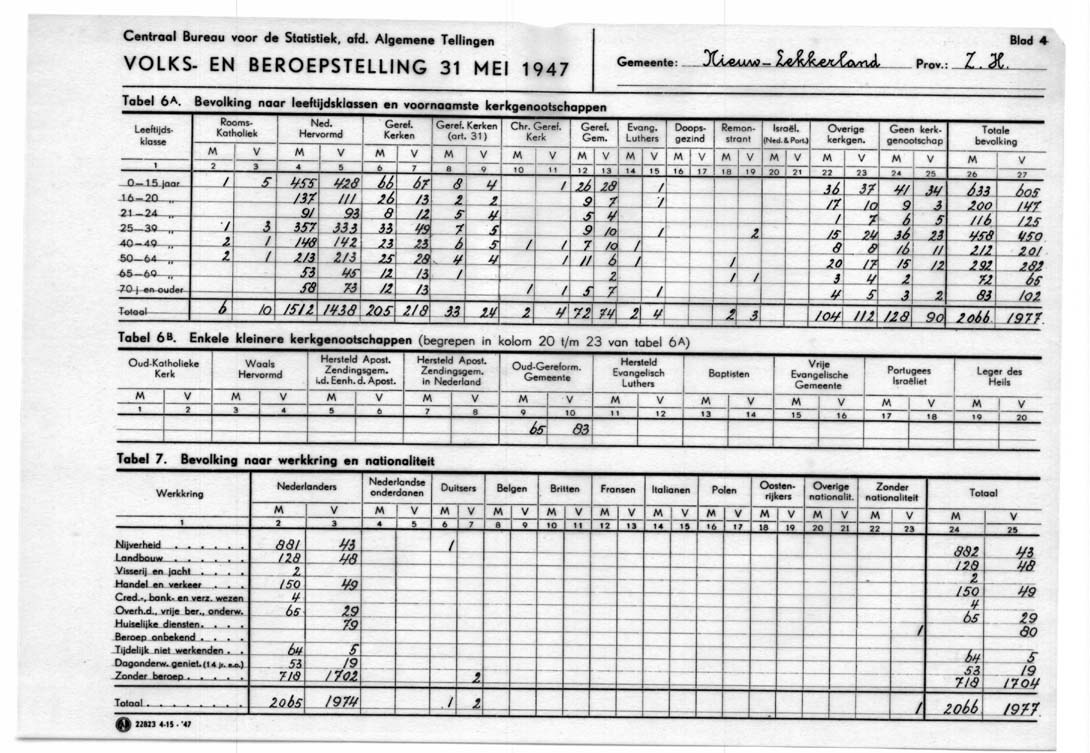 Centraal Bureau voor de Statistiek, afd. Algemene Tellingen
VOLKS- EN BEROEPSTELLING 31 MEI 1947
Gemeente: Nieuw-Lekkerland Prov.: Z.H.
Blad 4
Tabel 6A. Bevolking naar leeftijdsklassen en voornaamste kerkgenootschappen
Leeftijds-klasse Rooms-Katholiek Ned. Hervormd Geref. Kerken Geref. Kerken (art. 31) Chr. Geref. Kerk Geref. Gem. Evang. Luthers Doops-gezind Remon-strant Israël. (Ned. & Port.) Overige kerkgen. Geen kerk-genootschap Totale bevolking
M V M V M V M V M V M V M V M V M V M V M V M V M V
1 2 3 4 5 6 7 8 9 10 11 12 13 14 15 16 17 18 19 20 21 22 23 24 25 26 27
0-15 jaar 1 5 455 428 66 67 8 4 1 26 28 1 36 37 41 34 633 605
16-20 „ 137 111 26 13 2 2 9 7 1 17 10 9 3 200 147
21-24 „ 91 93 8 12 5 4 5 4 1 7 6 5 116 125
25-39 „ 1 3 357 333 33 49 7 5 9 10 1 2 15 24 36 23 458 450
40-49 „ 2 1 148 142 23 23 6 5 1 1 7 10 1 8 8 16 11 212 201
50-64 „ 2 1 213 213 25 28 4 4 1 11 6 1 1 20 17 15 12 292 282
65-69 „ 53 45 12 13 1 2 1 1 3 4 2 72 65
70 j. en ouder 58 73 12 13 1 1 5 7 1 4 5 3 2 83 102
Totaal 6 10 1512 1438 205 218 33 24 2 4 72 74 2 4 2 3 104 112 128 90 2066 1977
Tabel 6B. Enkele kleinere kerkgenootschappen (begrepen in kolom 20 t/m 23 van tabel 6A)
Oud-Katholieke Kerk Waals Hervormd Hersteld Apost. Zendingsgem. i.d. Eenh. d. Apost. Hersteld Apost. Zendingsgem. in Nederland Oud-Gereform. Gemeente Hersteld Evangelisch Luthers Baptisten Vrije Evangelische Gemeente Portugees Israëliet Leger des Heils
M V M V M V M V M V M V M V M V M V M V
1 2 3 4 5 6 7 8 9 10 11 12 13 14 15 16 17 18 19 20
65 83
Tabel 7. Bevolking naar werkkring en nationaliteit
Werkkring Nederlanders Nederlandse onderdanen Duitsers Belgen Britten Fransen Italianen Polen Oosten-rijkers Overige nationalit. Zonder nationaliteit Totaal
M V M V M V M V M V M V M V M V M V M V M V M V
1 2 3 4 5 6 7 8 9 10 11 12 13 14 15 16 17 18 19 20 21 22 23 24 25
Nijverheid . . . . . . 881 43 1 882 43
Landbouw . . . . . . 128 48 128 48
Visserij en jacht . . . . 2 2
Handel en verkeer . . . . 150 49 150 49
Cred.-, bank- en verz. wezen 4 4
Overh.d., vrije ber., onderw. 65 29 65 29
Huiselijke diensten. . . . 79 1 80
Beroep onbekend . . . .
Tijdelijk niet werkenden . . 64 5 64 5
Dagonderw. geniet. (14 jr. e.o.) 53 19 53 19
Zonder beroep. . . . . 718 1702 2 718 1704
Totaal. . . . . . . 2065 1974 1 2 1 2066 1977
22823 4-15 - '47